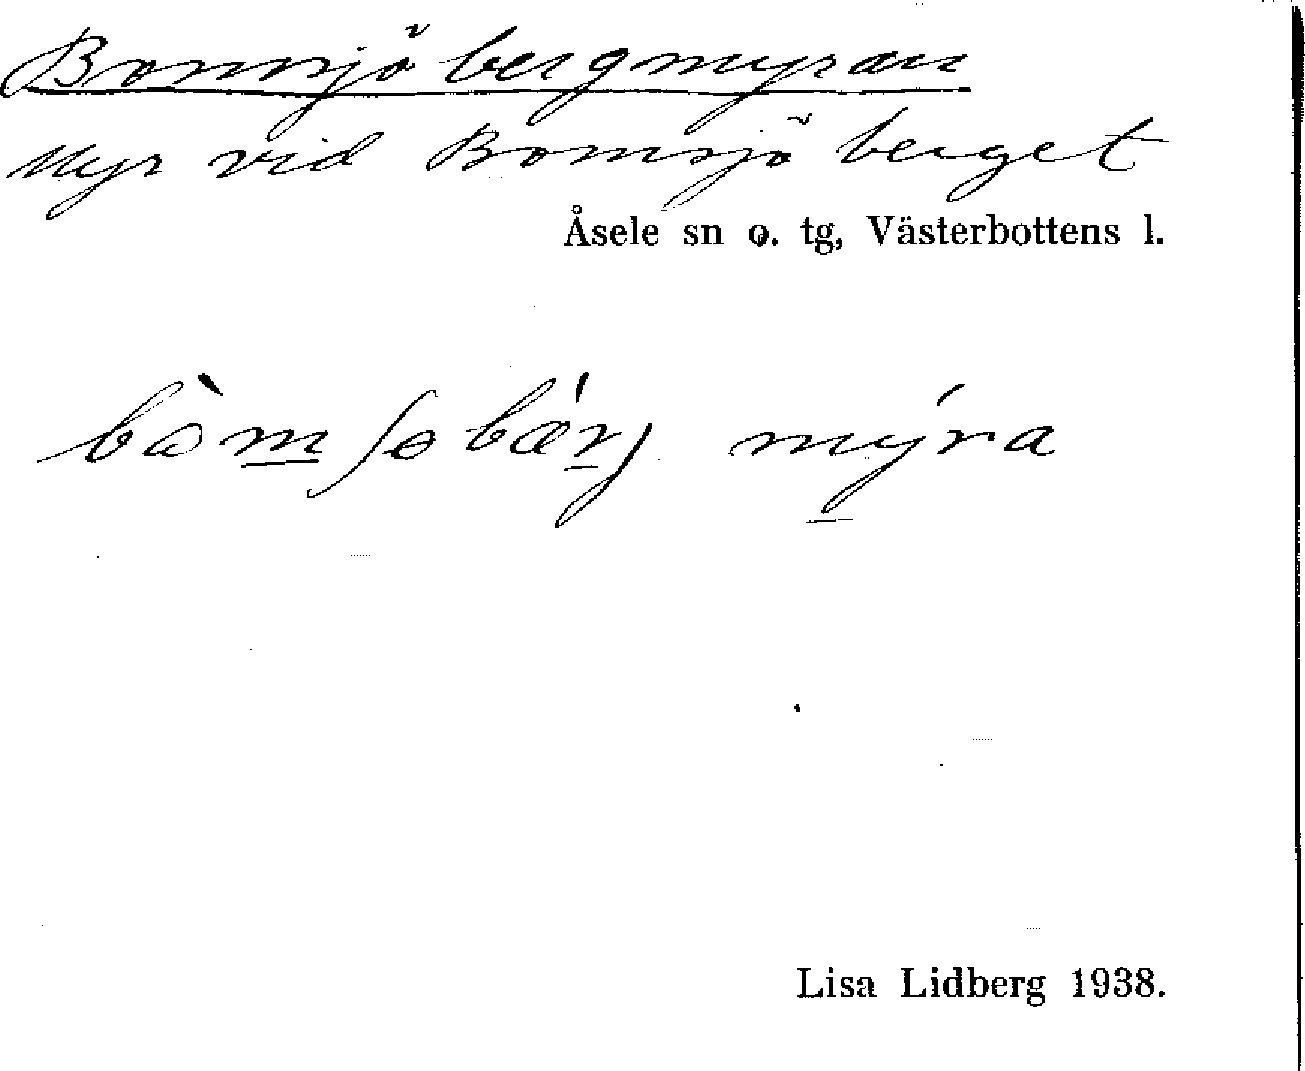 Bomsjöbergmyran
Myr vid Bomsjöberget
Åsele sn o. tg, Västerbottens l.
bòmʃɵbǽrj mýra
Lisa Lidberg 1938.